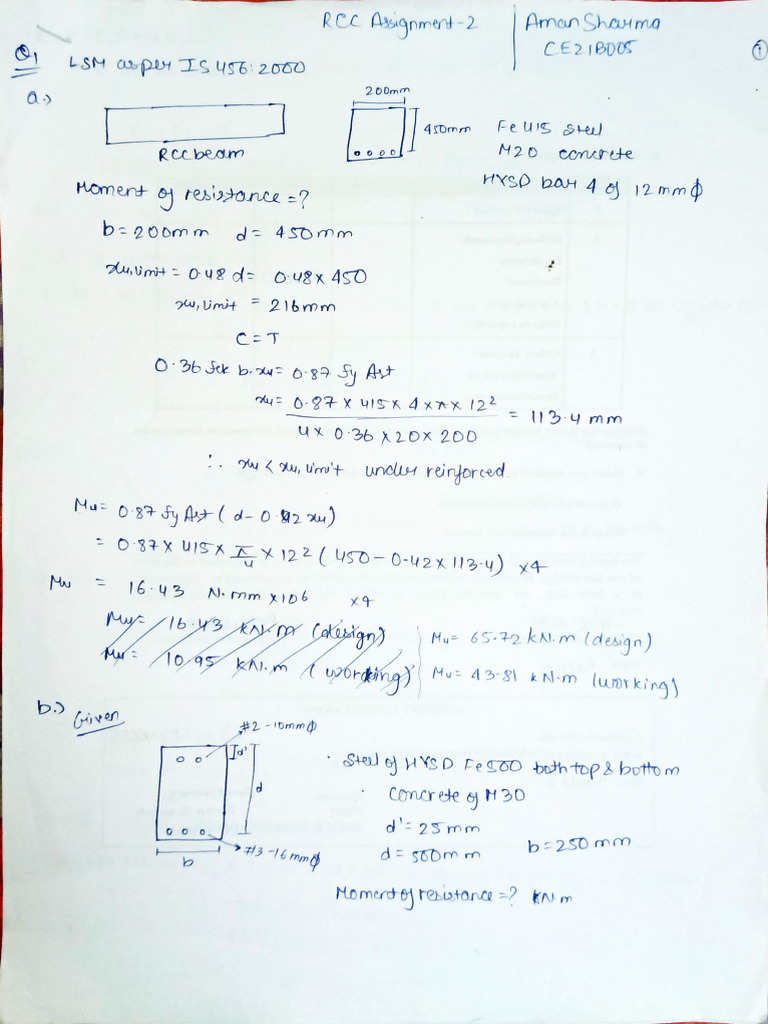 RCC Assignment-2
Aman Sharma
CE21B005
1
Q1 LSM as per IS 456:2000
a.)
200mm
450mm
Fe415 steel
RCC beam
M20 concrete
HYSD bar 4 of 12mmϕ
Moment of resistance =?
b = 200mm d = 450mm
xu,limit = 0.48 d = 0.48 × 450
xu,limit = 216mm
C = T
0.36 fck b.xu = 0.87 fy Ast
xu = 0.87 × 415 × 4 × π × 12² / 4 × 0.36 × 20 × 200 = 113.4 mm
∴ xu < xu,limit under reinforced.
Mu = 0.87 fy Ast ( d - 0.42 xu)
= 0.87 × 415 × π/4 × 12² ( 450 - 0.42 × 113.4) ×4
Mu = 16.43 N.mm ×10⁶ ×4
Mu = 16.43 kN.m (design)
Mu = 10.95 kN.m (working)
Mu = 65.72 kN.m (design)
Mu = 43.81 kN.m (working)
b.) Given
#2-10mmϕ
d'
d
b
#3-16mmϕ
· Steel of HYSD Fe500 both top & bottom
· Concrete of M30
d' = 25mm
d = 500mm b = 250mm
Moment of resistance =? kN.m